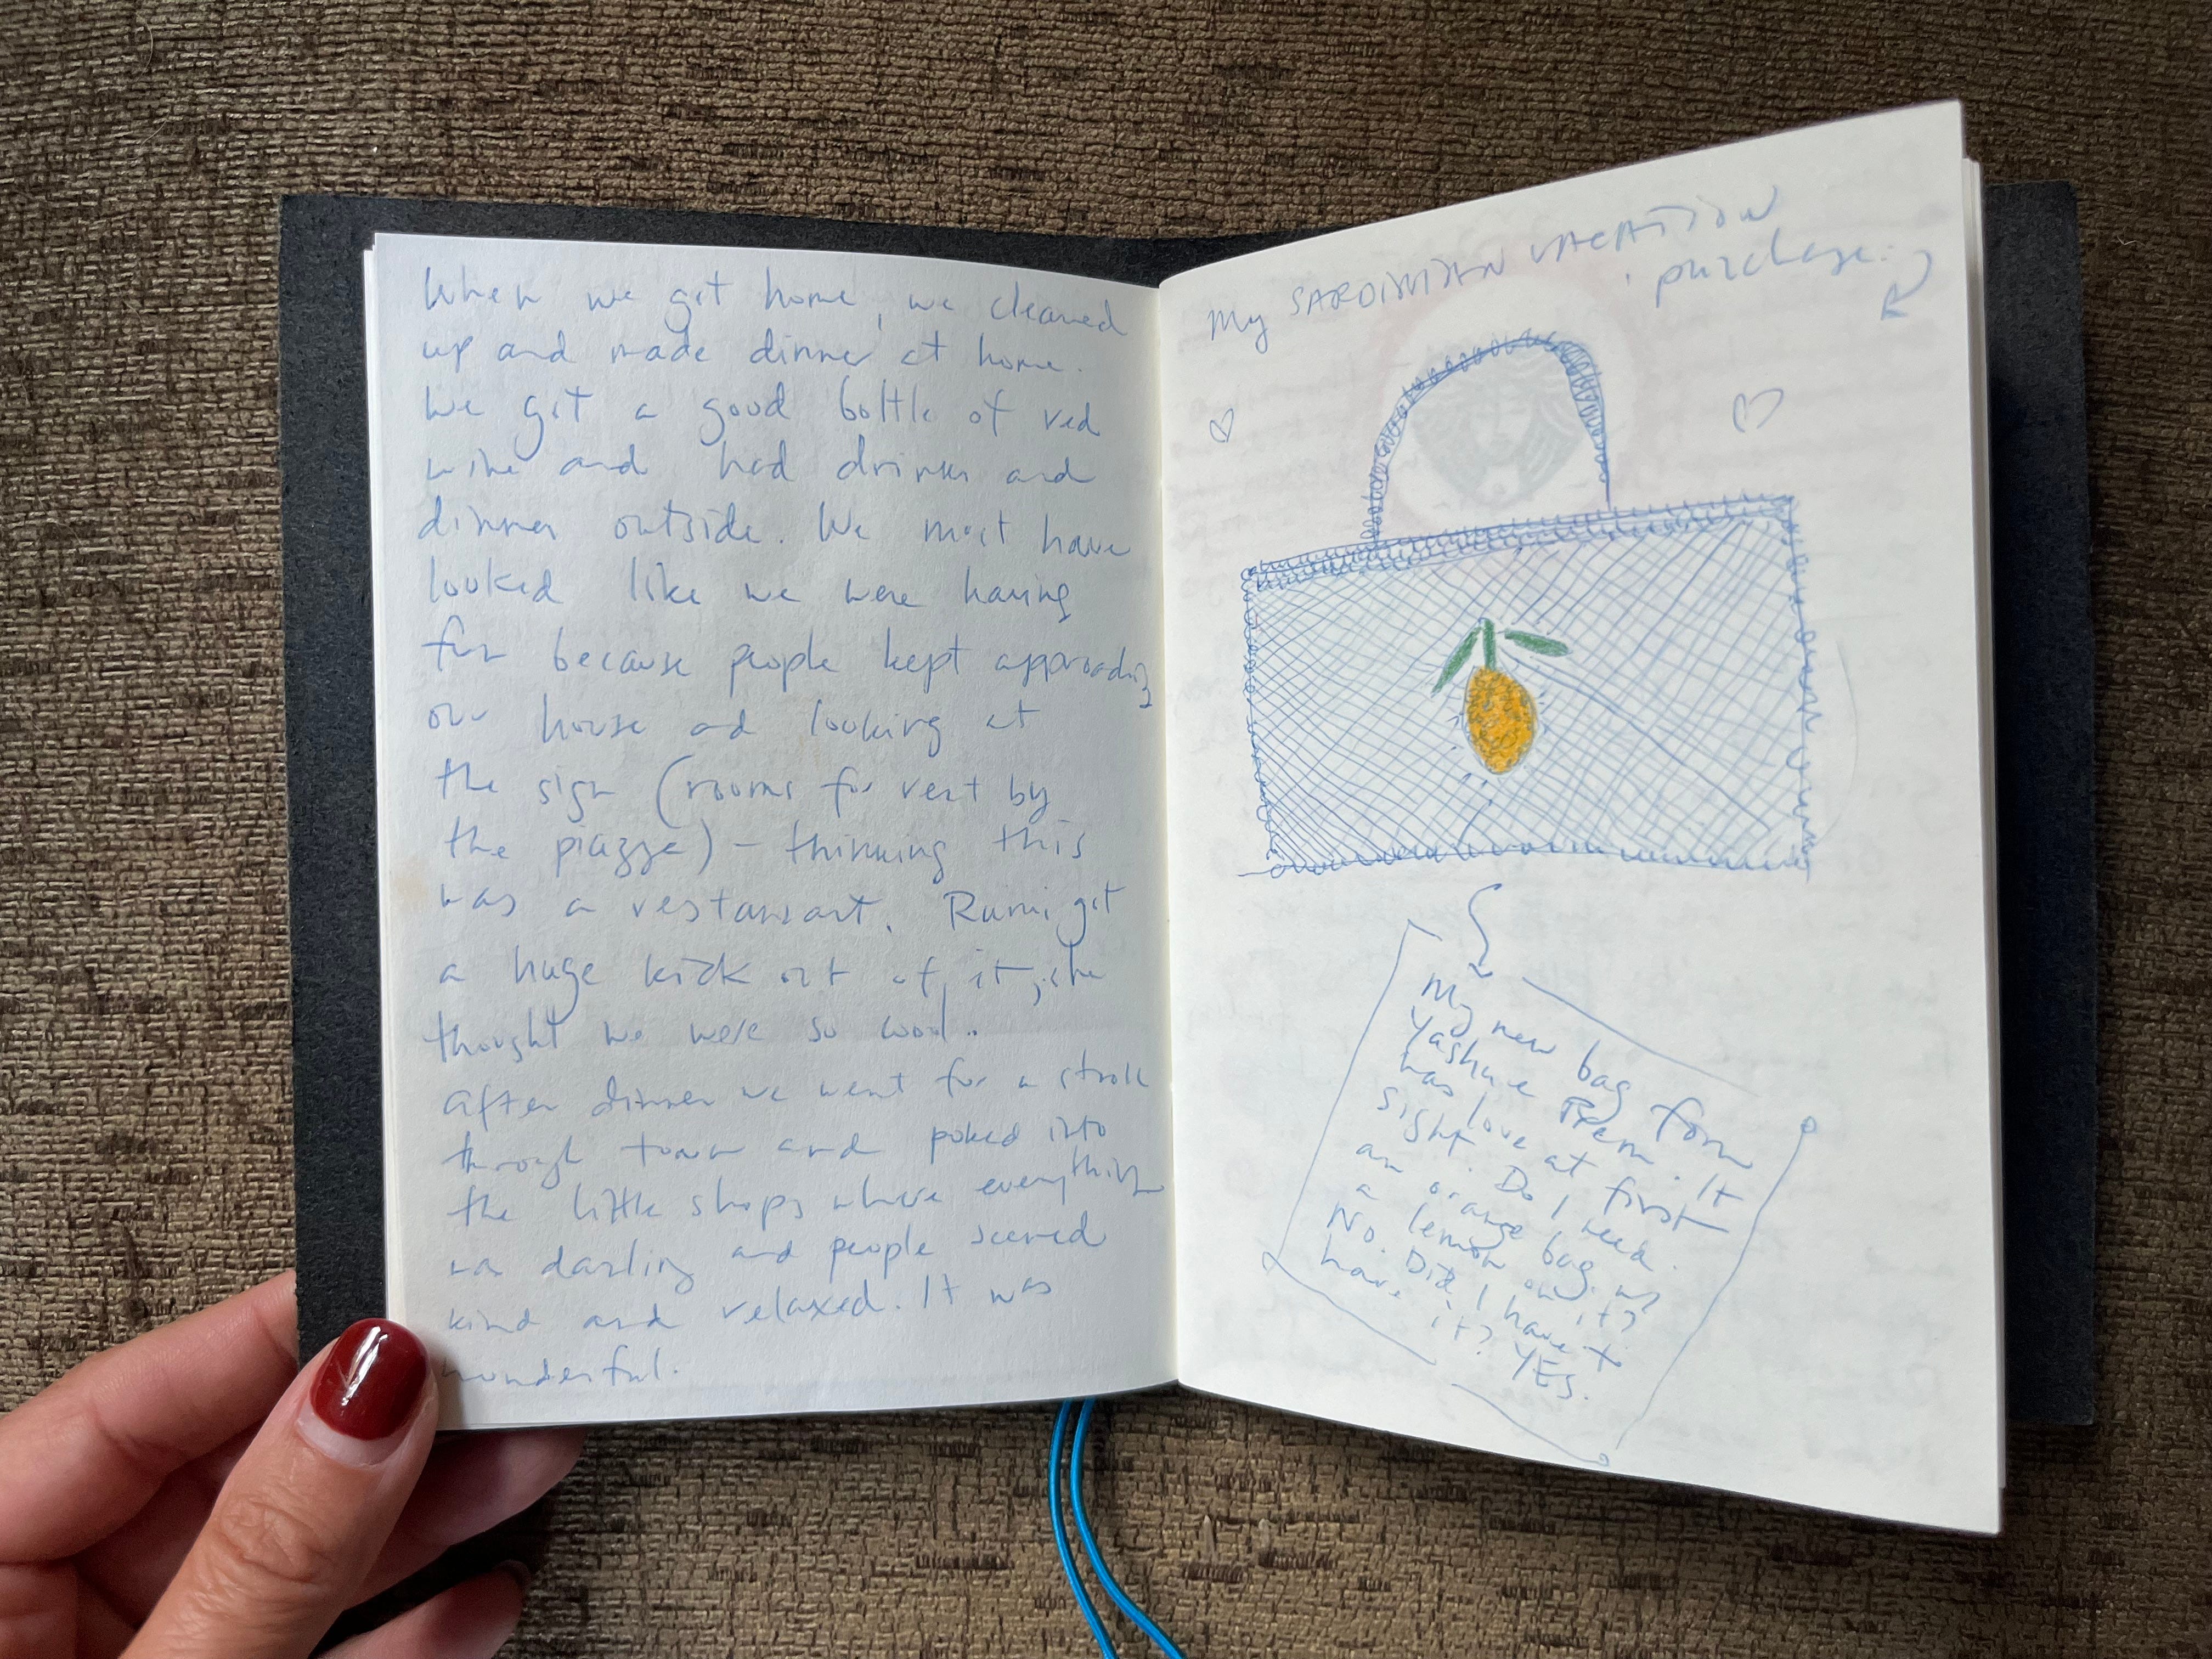 When we got home, we cleaned
up and made dinner at home.
We got a good bottle of red
wine and had drinks and
dinner outside. We must have
looked like we were having
fun because people kept approaching
our house and looking at
the sign (rooms for rent by
the piazza) - thinking this
was a restaurant. Rumi got
a huge kick out of it, she
thought we were so cool.
After dinner we went for a stroll
through town and poked into
the little shops where everything
was darling and people seemed
kind and relaxed. It was
wonderful.
My SARDINIAN VACATION
purchase:
My new bag from
It
was love at first
sight. Do I need
an orange bag w/
a lemon on it?
No. Did I have to
have it? YES.